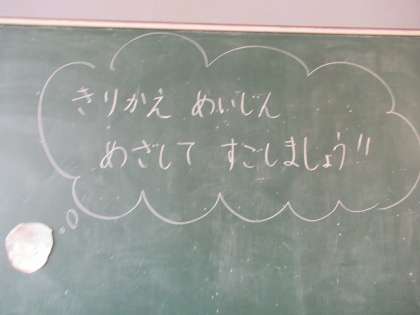 きりかえ めいじん
めざして すごしましょう!!